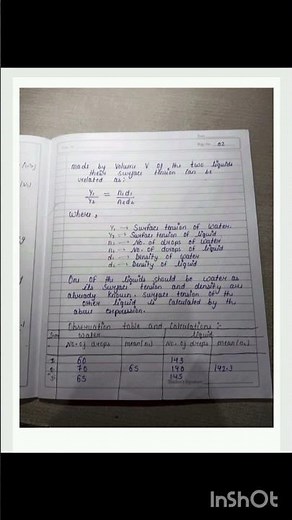 made by volume V of the two liquids
their surface tension can be
related as:
γ₁ / γ₂ = n₂d₁ / n₁d₂
Where,
γ₁ → Surface tension of water.
γ₂ → Surface tension of liquid
n₁ → No. of drops of water
n₂ → No. of drops of liquid
d₁ → Density of water
d₂ → Density of liquid
One of the liquids should be water as
its surface tension and density are
already known. Surface tension of the
other liquid is calculated by the
above expression.
Observation table and Calculations :-
Water liquid
No. of drops mean (n₁) No. of drops mean (n₂)
60 143
70 65 140 142.3
65 145
InShOt